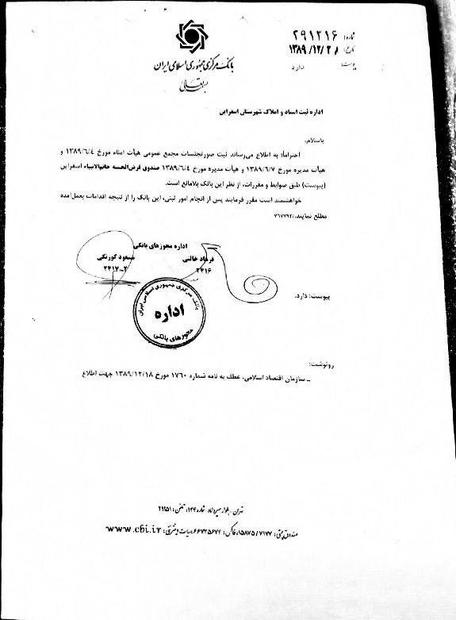 شماره: ۲۹۱۲۱۶
تاریخ: ۱۳۸۹/۱۲/۲۸
پیوست: دارد
بانک مرکزی جمهوری اسلامی ایران
بسمه تعالی
اداره ثبت اسناد و املاک شهرستان اسفراین
باسلام،
احتراماً؛ به اطلاع می‌رساند ثبت صورتجلسات مجمع عمومی هیأت امناء مورخ ۱۳۸۹/۶/۴ و
هیأت مدیره مورخ ۱۳۸۹/۶/۷ و هیأت مدیره مورخ ۱۳۸۹/۶/۴ صندوق قرض‌الحسنه خاتم‌الانبیاء اسفراین
(پیوست) طبق ضوابط و مقررات، از نظر این بانک بلامانع است.
خواهشمند است مقرر فرمایند پس از انجام امور ثبتی، این بانک را از نتیجه اقدامات بعمل‌آمده
مطلع نمایند./۷۶۷۷۹۲
اداره مجوزهای بانکی
فرهاد خالتی مسعود کورنکی
۲۴۱۶ ۲۴۱۷-۲
بانک مرکزی جمهوری اسلامی ایران
اداره
مجوزهای بانکی
پیوست: دارد.
رونوشت:
_ سازمان اقتصاد اسلامی، عطف به نامه شماره ۱۷۶۰ مورخ ۱۳۸۹/۱۲/۱۸ جهت اطلاع
تهران - بلوار میرداماد - شماره ۱۴۴، تلفن: ۲۹۹۵۱
صندوق پستی: ۱۵۸۷۵/۷۱۷۷، فاکس: ۶۶۷۳۵۶۷۴، سایت اینترنتی: www.cbi.ir